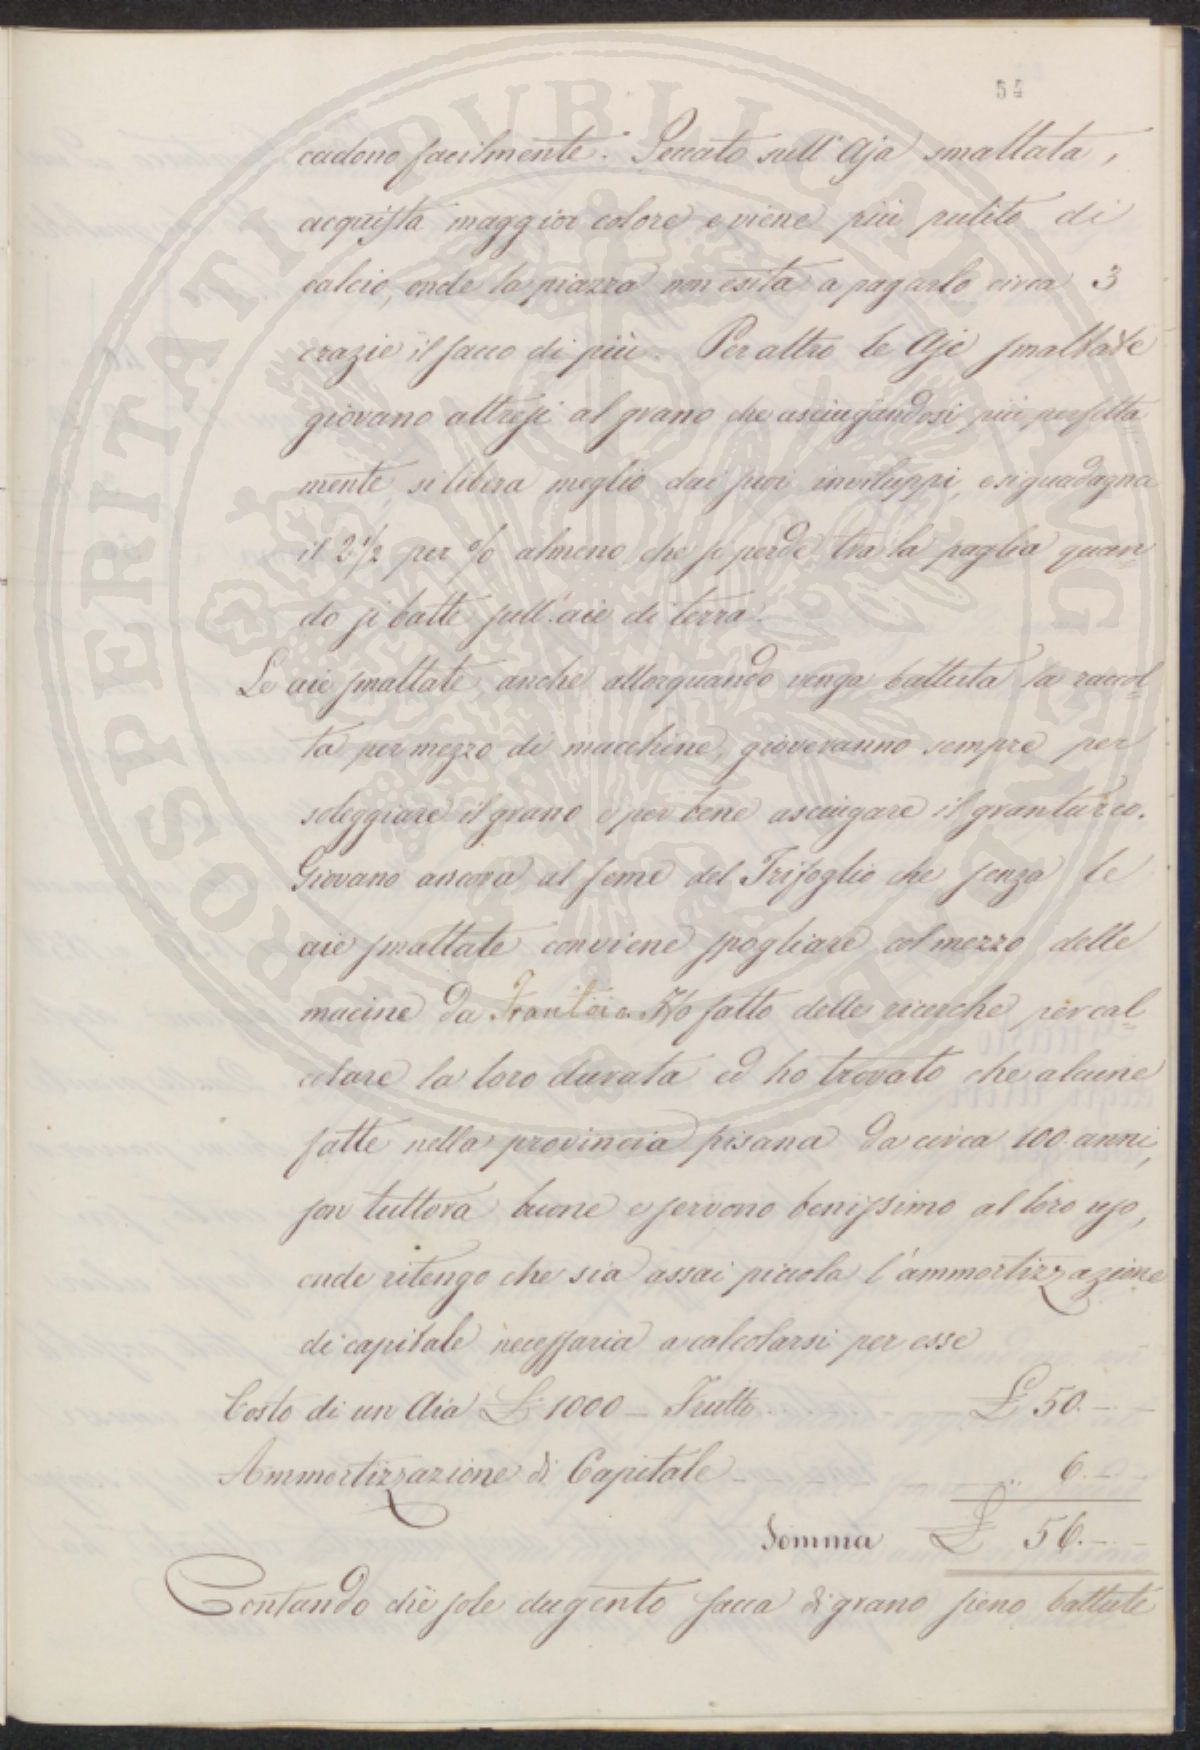 54
cadono facilmente. Seccato sull'Aja smaltata,
acquista maggior colore e viene più pulito di
calcio, onde la piazza non esita a pagarlo circa 3
crazie il sacco di più. Per altro le Aje smaltate
giovano altresi al grano che asciugandosi più perfetta
mente, si libera meglio dai suoi inviluppi, e si guadagna
il 2 1/2 per % almeno, che si perde tra la paglia quan
do si batte sull'aie di terra.
Le aie smaltate, anche allorquando venga battuta la raccol
ta per mezzo di macchine, gioveranno sempre per
soleggiare il grano e per bene asciugare il granturco.
Giovano ancora al seme del Trifoglio che senza le
aie smaltate conviene spogliare col mezzo delle
macine da Frantoio. Ho fatto delle ricerche per cal
colare la loro durata ed ho trovato che alcune
fatte nella provincia pisana da circa 100 anni,
son tuttora buone e servono benissimo al loro uso,
onde ritengo che sia assai piccola l'ammortizzazione
di capitale necessaria a calcolarsi per esse
Costo di un Aia £ 1000 - Frutto £ 50.-
Ammortizzazione di Capitale - - - „ 6.-
Somma £ 56.-
Contando che sole dugento sacca di grano sieno battute
PROSPERITATI PUBLICAE AUGENDAE